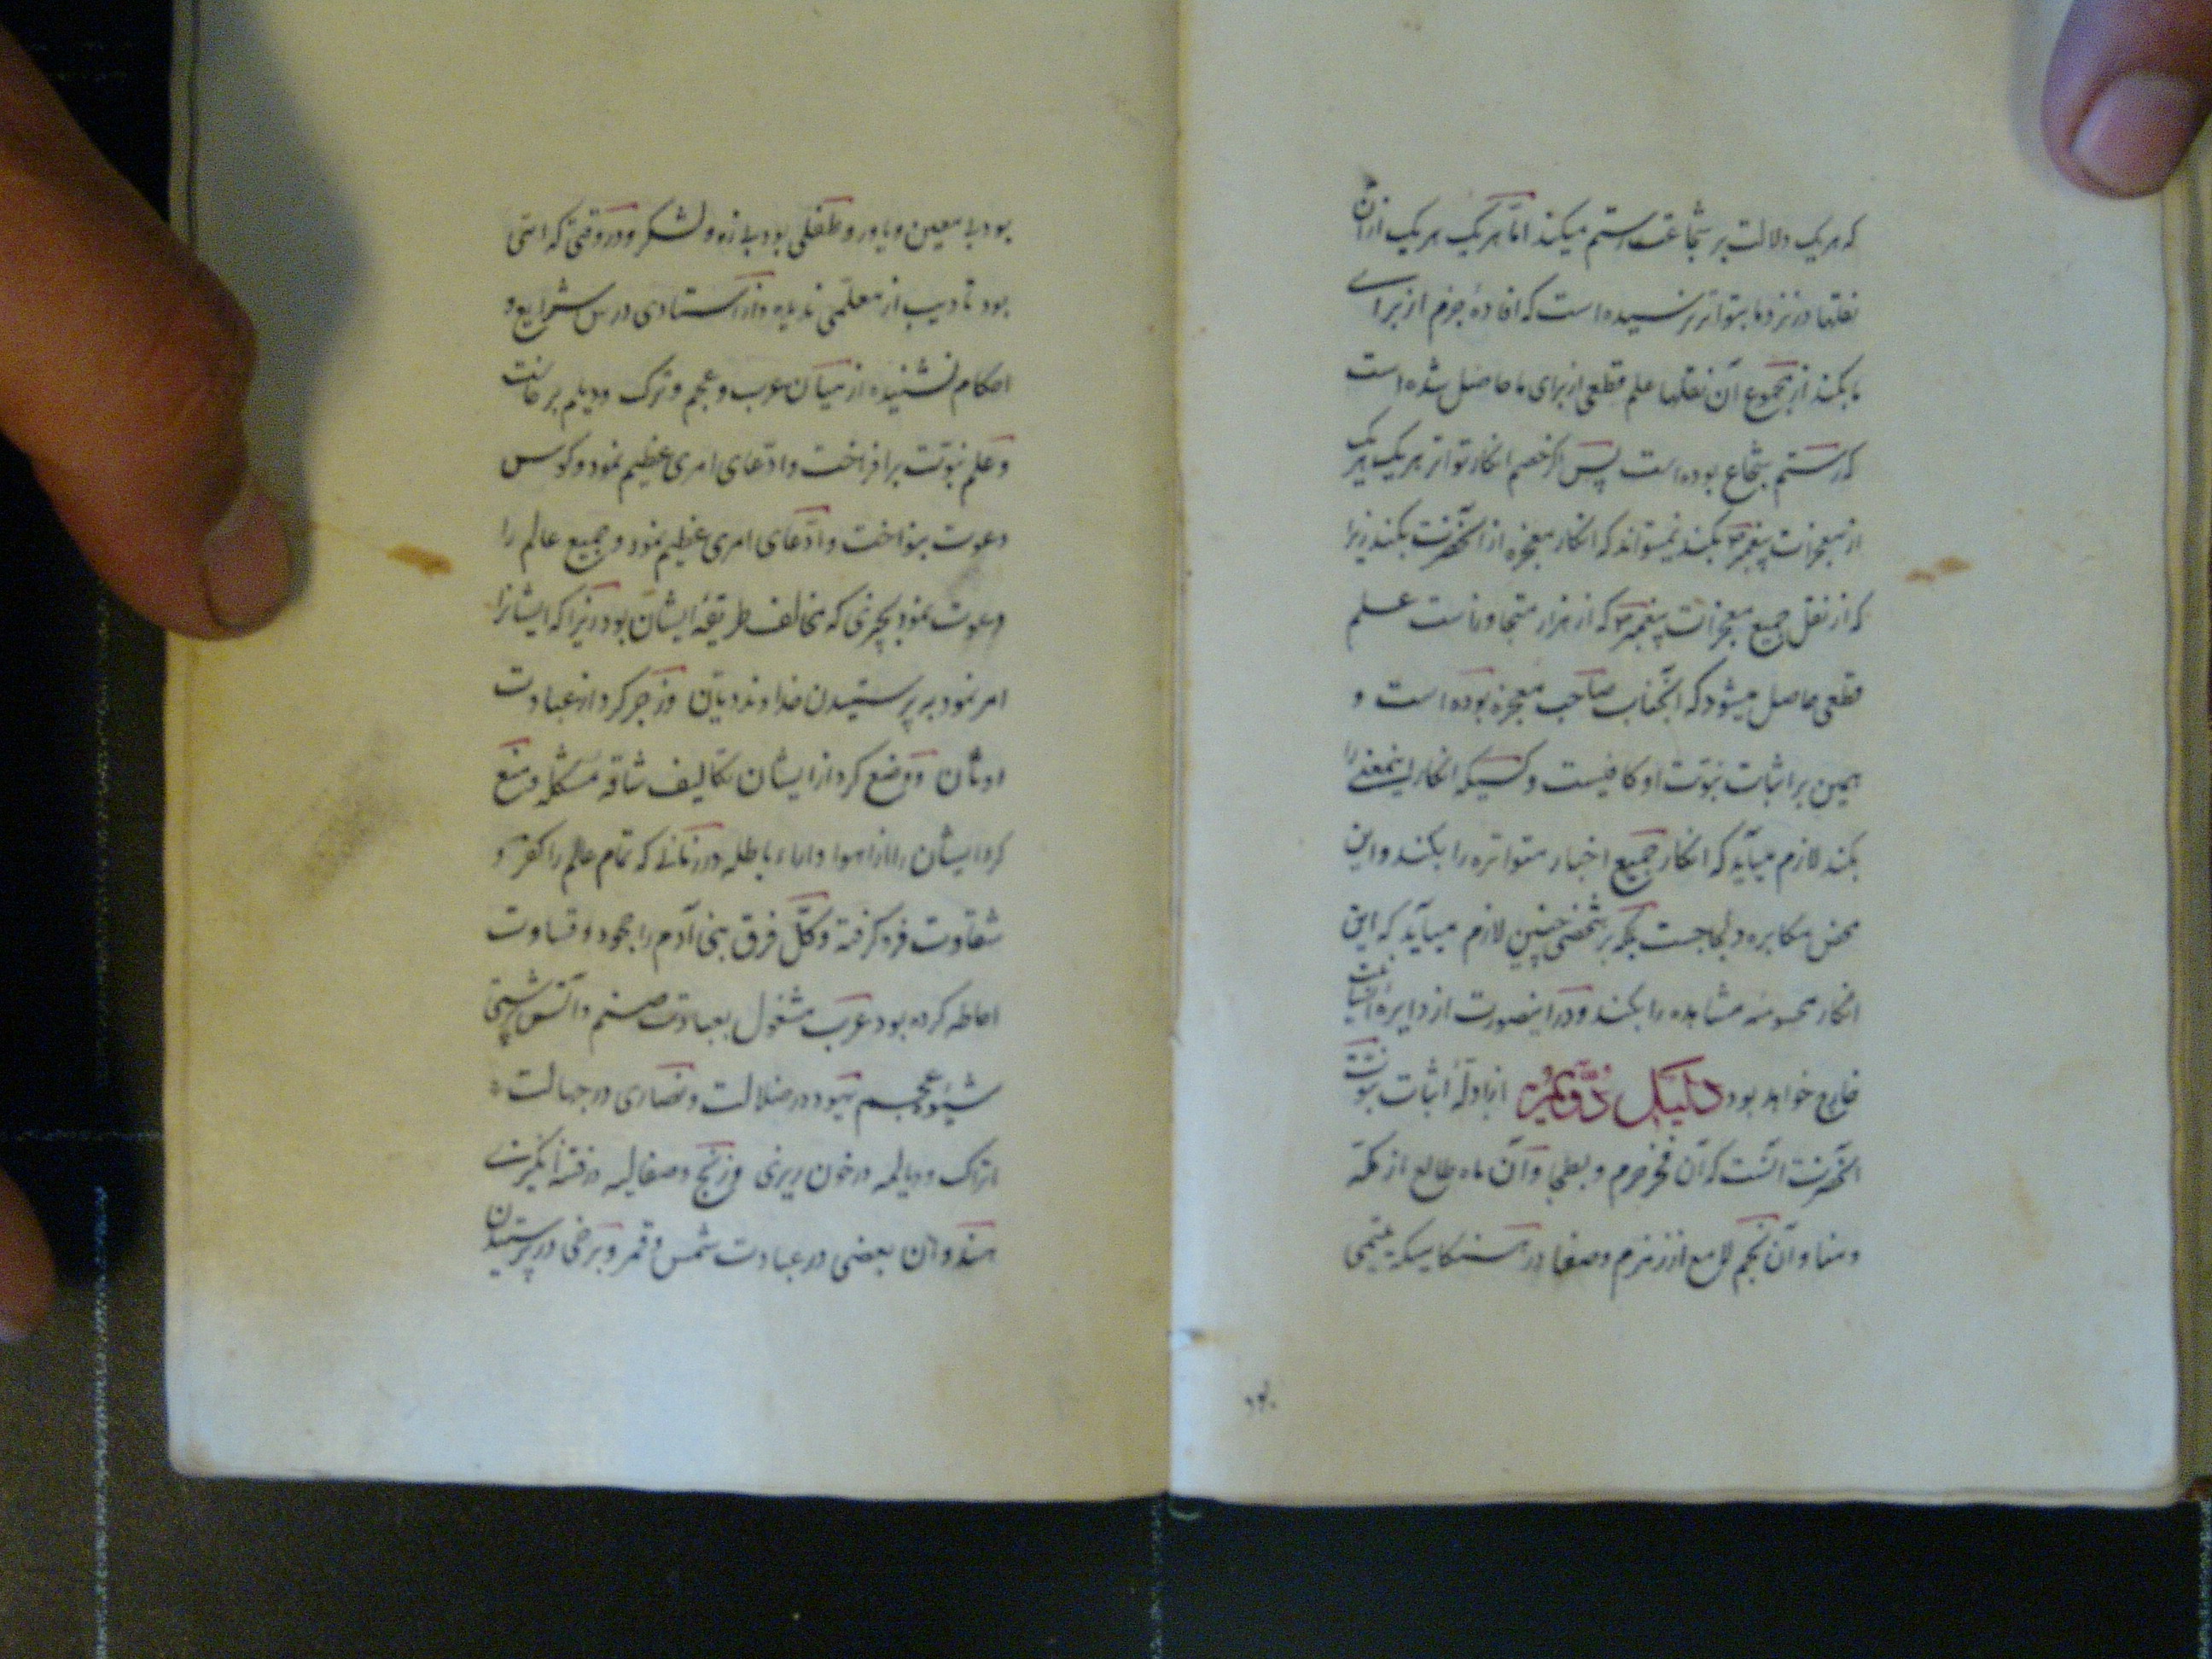 که هریک دلالت بر شجاعت رستم میکند اما هریک هریک ازان
نقلها در نزد ما بتواتر نرسیده است که افادهٔ جزم از برای
ما بکند از مجموع آن نقلها علم قطعی از برای ما حاصل شده است
که رستم شجاع بوده است پس اگر خصم انکار تواتر هریک هریک
از معجزات پیغمبر بکند نمیتواند که انکار معجزه از آنحضرت بکند زیرا
که از نقل جمیع معجزات پیغمبر که از هزار متجاوز است علم
قطعی حاصل میشود که آنجناب صاحب معجزه بوده است و
همین بر اثبات نبوت او کافیست و کسیکه انکار اینمعنی را
بکند لازم میآید که انکار جمیع اخبار متواتره را بکند و این
محض مکابره و لجاجت بلکه بر شخصی چنین لازم میآید که این
انکار محسوسه مشاهده را بکند و در اینصورت از دایرهٔ
خارج خواهد بود دلیل دویم از ادلهٔ اثبات نبوت
آنحضرت آنست که آن فخر حرم و بطحا و آن ماه طالع از مکه
و منا و آن نجم لامع از زمزم و صفا در هنگامیکه یتیمی
بود
بود بی معین و یاور و طفلی بود بی زر و لشکر و در وقتی که امّی
بود تادیب از معلمی ندیده و از استادی درس شرایع و
احکام نشنیده از میان عرب و عجم و ترک و دیلم برخاست
و علم نبوت برافراخت و ادعای امری عظیم نمود و کوس
دعوت بنواخت و ادّعای امری عظیم نمود و جمیع عالم را
دعوت نمود بچیزی که مخالف طریقهٔ ایشان بود زیرا که ایشانرا
امر نمود به پرستیدن خداوند دیان و زجر کرد از عبادت
اوثان و وضع کرد از ایشان تکالیف شاقه مشکله و منع
کرد ایشان را از اهوا و اراء باطله در زمانی که تمام عالم را کفر و
شقاوت فرو گرفته و کلّ فرق بنی آدم را جحود و قساوت
احاطه کرده بود عرب مشغول بعبادت صنم و آتش پرستی
شیوهٔ عجم یهود در ضلالت و نصاری در جهالت
اتراک و دیالمه در خون ریزی و زنج و صقالبه در فتنه انگیزی
هندوان بعضی در عبادت شمس و قمر و برخی در پرستیدن